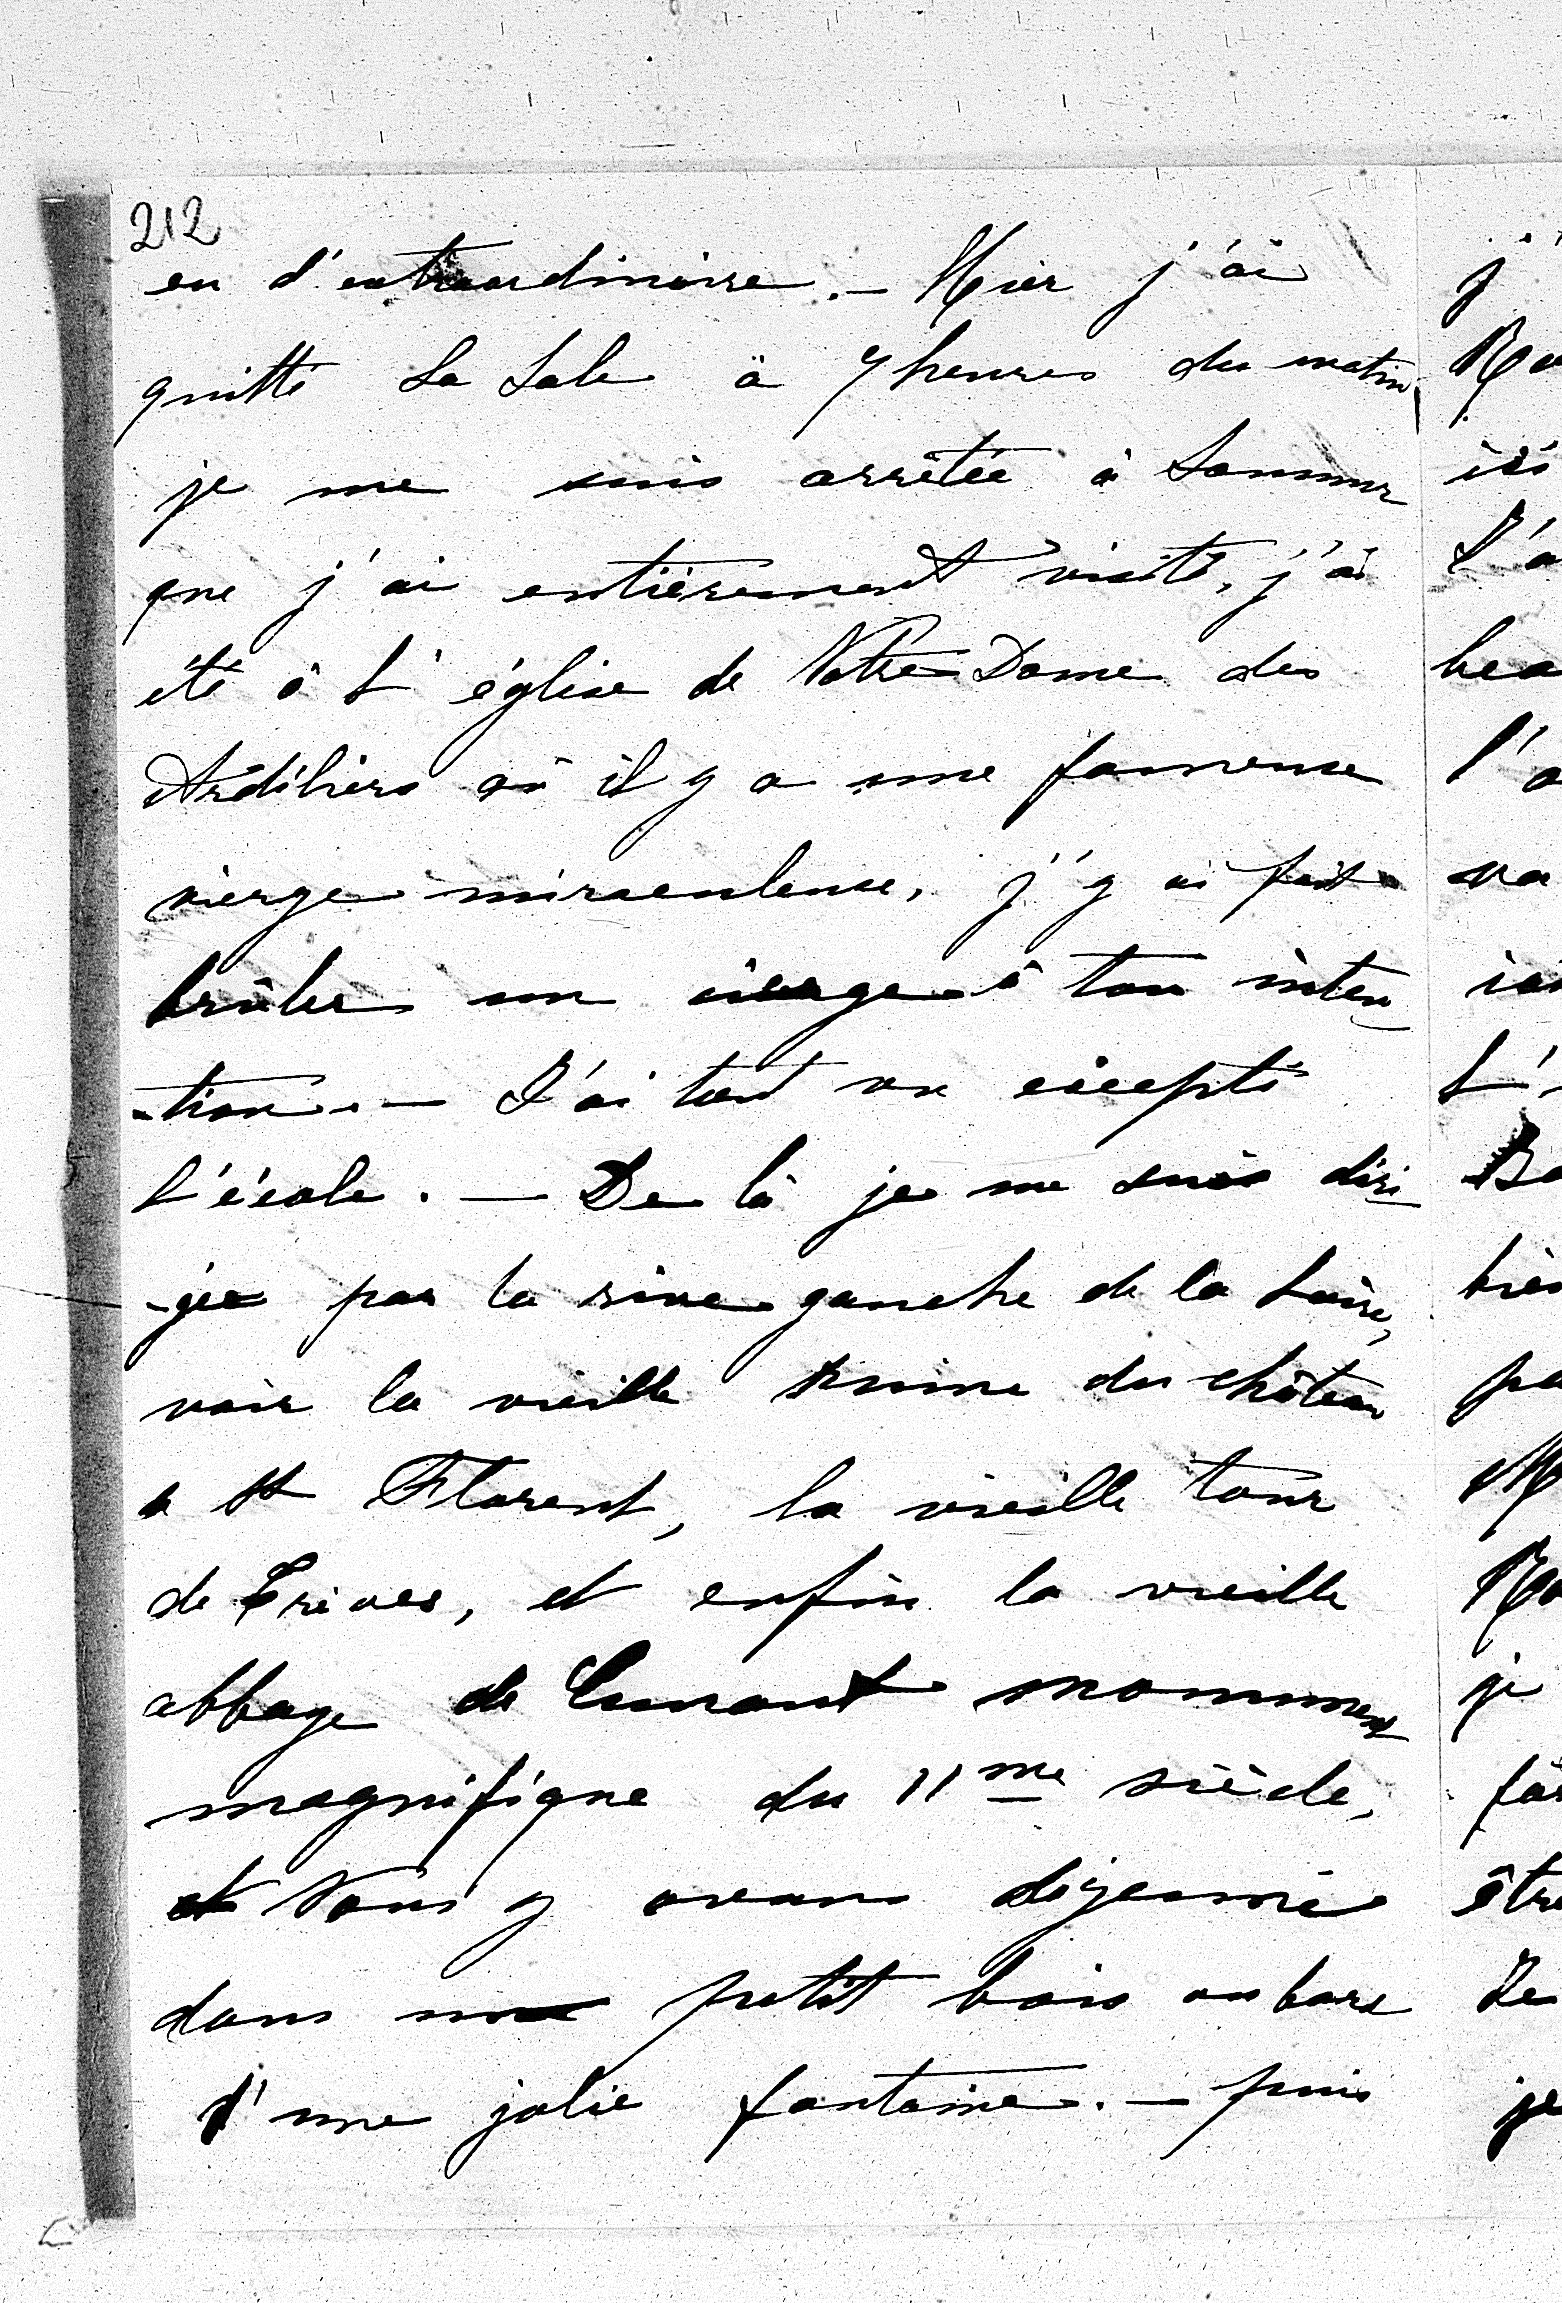 212
eu d'extraordinaire. — Hier j'ai
quitté La Sale à 7 heures du matin
je me suis arrêtée à Saumur
que j'ai entièrement visité, j'ai
été à l'église de Notre Dame des
Ardiliers où il y a une fameuse
vierge miraculeuse, j'y ai fait
brûler un cierge à ton inten
-tion. — J'ai tout vu excepté
l'école. — De là je me suis diri
-gée par la rive gauche de la Loire,
voir la vieille ruine du château
a St Florent, la vieille tour
de Trèves, et enfin la vieille
abbaye de Cunault monument
magnifique du 11me siècle,
et nous y avons déjeuné
dans un petit bois au bord
d'une jolie fontaine. — puis